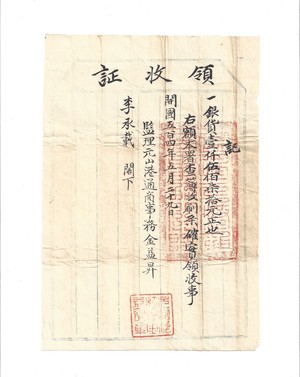 領收証
記
一銀貨壹仟伍佰柒拾元正也
右額本署
確實領收事
開國五百四年五月二十九日
監理元山港通商事務金益昇
李承載 閣下